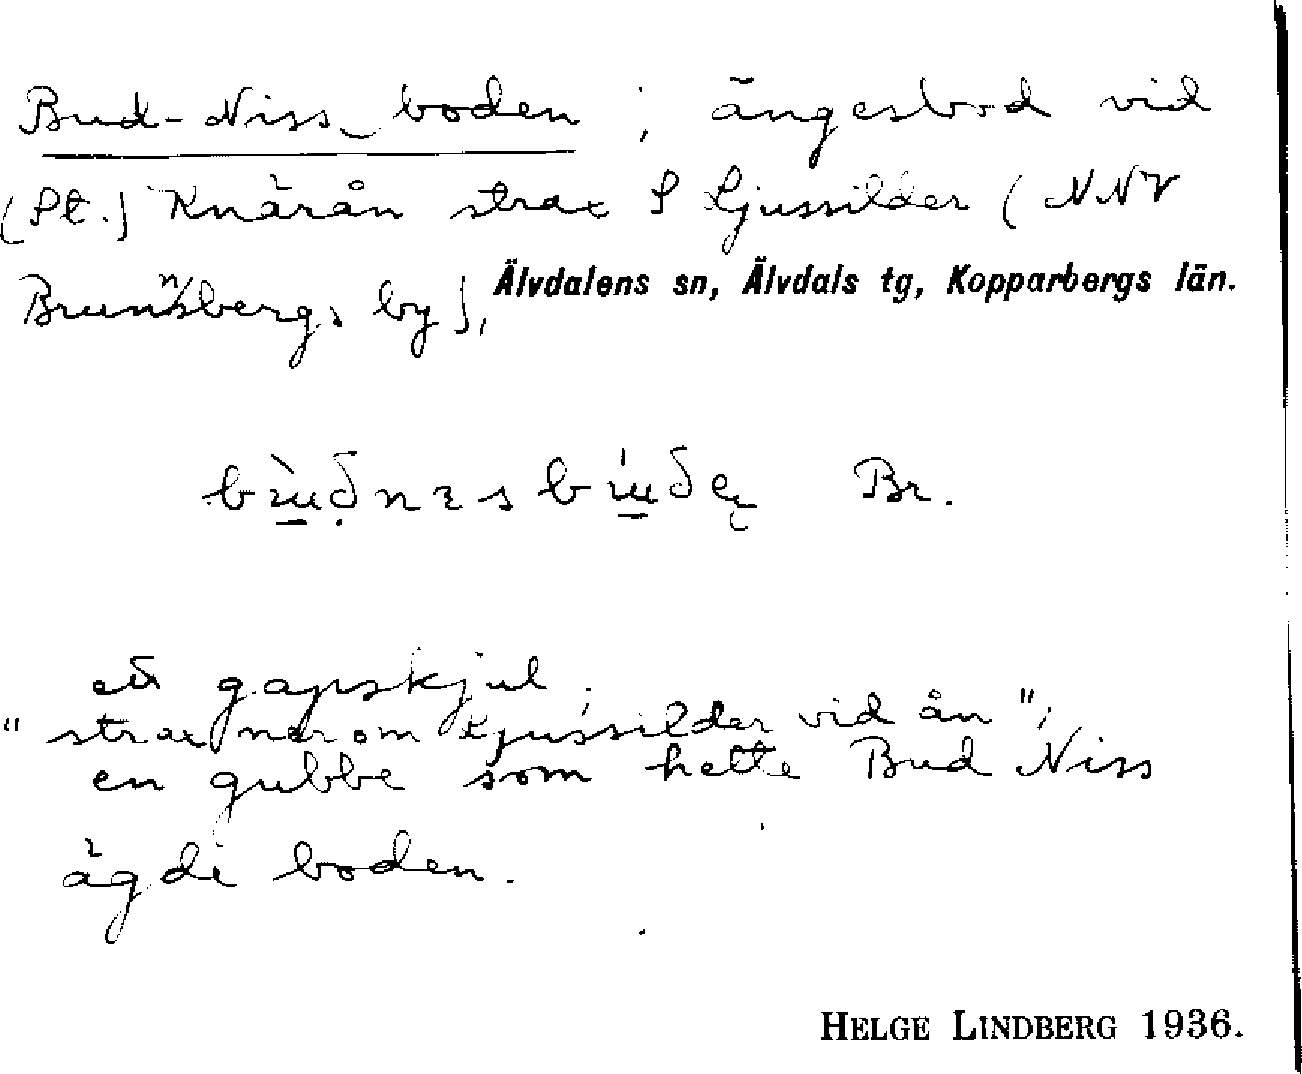 Bud-Niss boden ; ängesbod vid
(St.) Knärån strax S Ljussilder (NNV
Brunnsbergs by), Älvdalens sn, Älvdals tg, Kopparbergs län.
Br.
ett gapskjul ;
"strax nerom Ljussilder vid ån";
en gubbe som hette Bud Niss
ägde boden.
HELGE LINDBERG 1936.